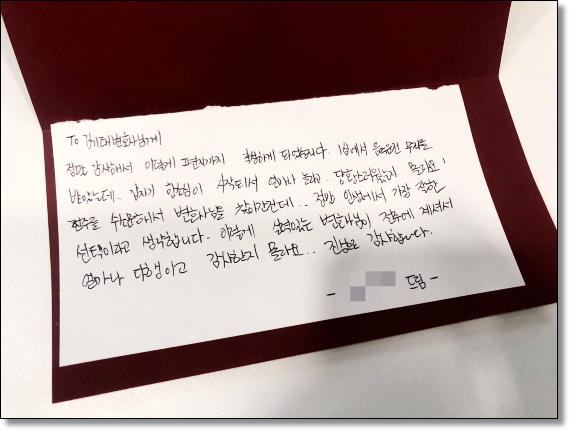 To 김기태변호사님께
정말 감사해서 이렇게 편지까지 작성하게 되었습니다. 1심에서 음주운전 무죄를
받았는데.. 갑자기 항소심이 시작되서 얼마나 놀라고 당황스러웠는지 몰라요!
변호사님을 찾아간건데.. 정말 인생에서 가장 잘한
선택이라고 생각합니다. 이렇게 실력있는 변호사님이 전주에 계셔서
얼마나 다행이고 감사한지 몰라요.. 진심으로 감사합니다.
- 드림 -